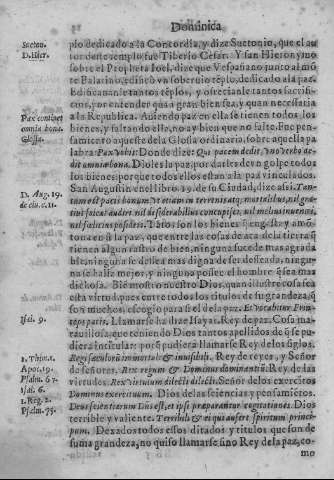 Dominica
Sueton.
D. Hier.
plo dedicado a la Concordia, y dize Suetonio, que el au
tor deste templo fue Tiberio Cesar. Y san Hieronymo
sobre el Propheta Ioel, dize que Vespasiano junto al mō
te Palatino, edificò vn soberuio tēplo, dedicado a la paz.
Edificauanle tantos tēplos, y ofrecianle tantos sacrifi-
cios, por entender quā gran bien sea, y quan necessaria
a la Republica. Auiendo paz en ella se tienen todos los
bienes, y faltando ella, no ay bien que no falte. Fue pen-
samiento aqueste de la Glosa ordinaria, sobre aquella pa
labra Pax vobis: Donde dize: Qui pacem dedit,
omnia bona. Dioles la paz por darles de vn golpe todos
los bienes: porque todos ellos estan a la paz vinculados.
San Augustin en el libro 19. de su Ciudad, dize assi. Tan-
tum est pacis bonum, vt etiam in terrenis atq; mortalibus, nil gra
tius soleat audiri nil desiderabilius concupisci, nil melius inueniri,
Pax continet
omnia bona.
Glossa.
D. Aug. 19.
de ciu. c. 11.
tienen algun rastro de bien, ninguna sucede mas agrada
ble, ninguna se dessea mas digna de ser desseada, ningu-
na se halla mejor, y ninguno possee el hombre q̃ sea mas
dichosa. Bie mostrò nuestro Dios, quan illustre cosa sea
esta virtud, pues entre todos los titulos de su grandeza, q̃
son muchos, escogio para si el de la paz. Et vocabitur Prin-
ceps pacis. Llamarse ha dize Isayas, Rey de paz. Cosa ma-
rauillosa, que teniendo Dios tantos apellidos de q̃ se pu-
diera inchir: porq̃ pudiera llamarse Rey de los siglos.
Regi sæculorū immortali & inuisibili. Rey de reyes, y Señor
de señores. Rex regum & Dominus dominantiū. Rey de las
virtudes. Rex virtutum dilecti dilecti. Señor de los exercitos
Dominus exercituum. Dios de las sciencias y pensamientos.
Deus scientiarum Dñs est, et ipsi præparantur cogitationes. Dios
terrible y valiente. Terribili & ei qui aufert spiritum princi-
pum. Dexados todos essos ditados y titulos que son de
suma grandeza, no quiso llamarse sino Rey de la paz, co-
Isai. 9.
1. Thim. 1.
Apoc. 19.
Psalm. 67.
Isai. 6.
1. Reg. 2.
Psalm. 75.
mo